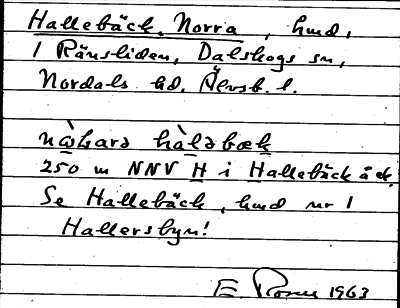 Hallebäck, Norra, hmd,
1 Ränsliden, Dalskogs sn,
Nordals hd. Älvsb. l.
nàʂʈarə hàləbæk
250 m NNV H i Hallebäck åek.
Se Hallebäck, hmd nr 1
Hallersbyn!
E. 1963